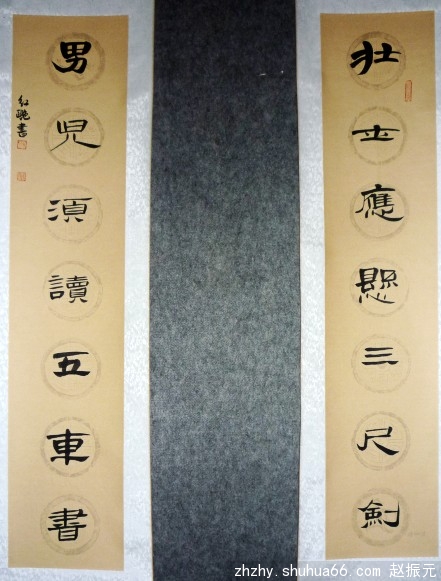 壯士應懸三尺劍
男兒須讀五東書
zhzhy.shuhua66.com 赵振元